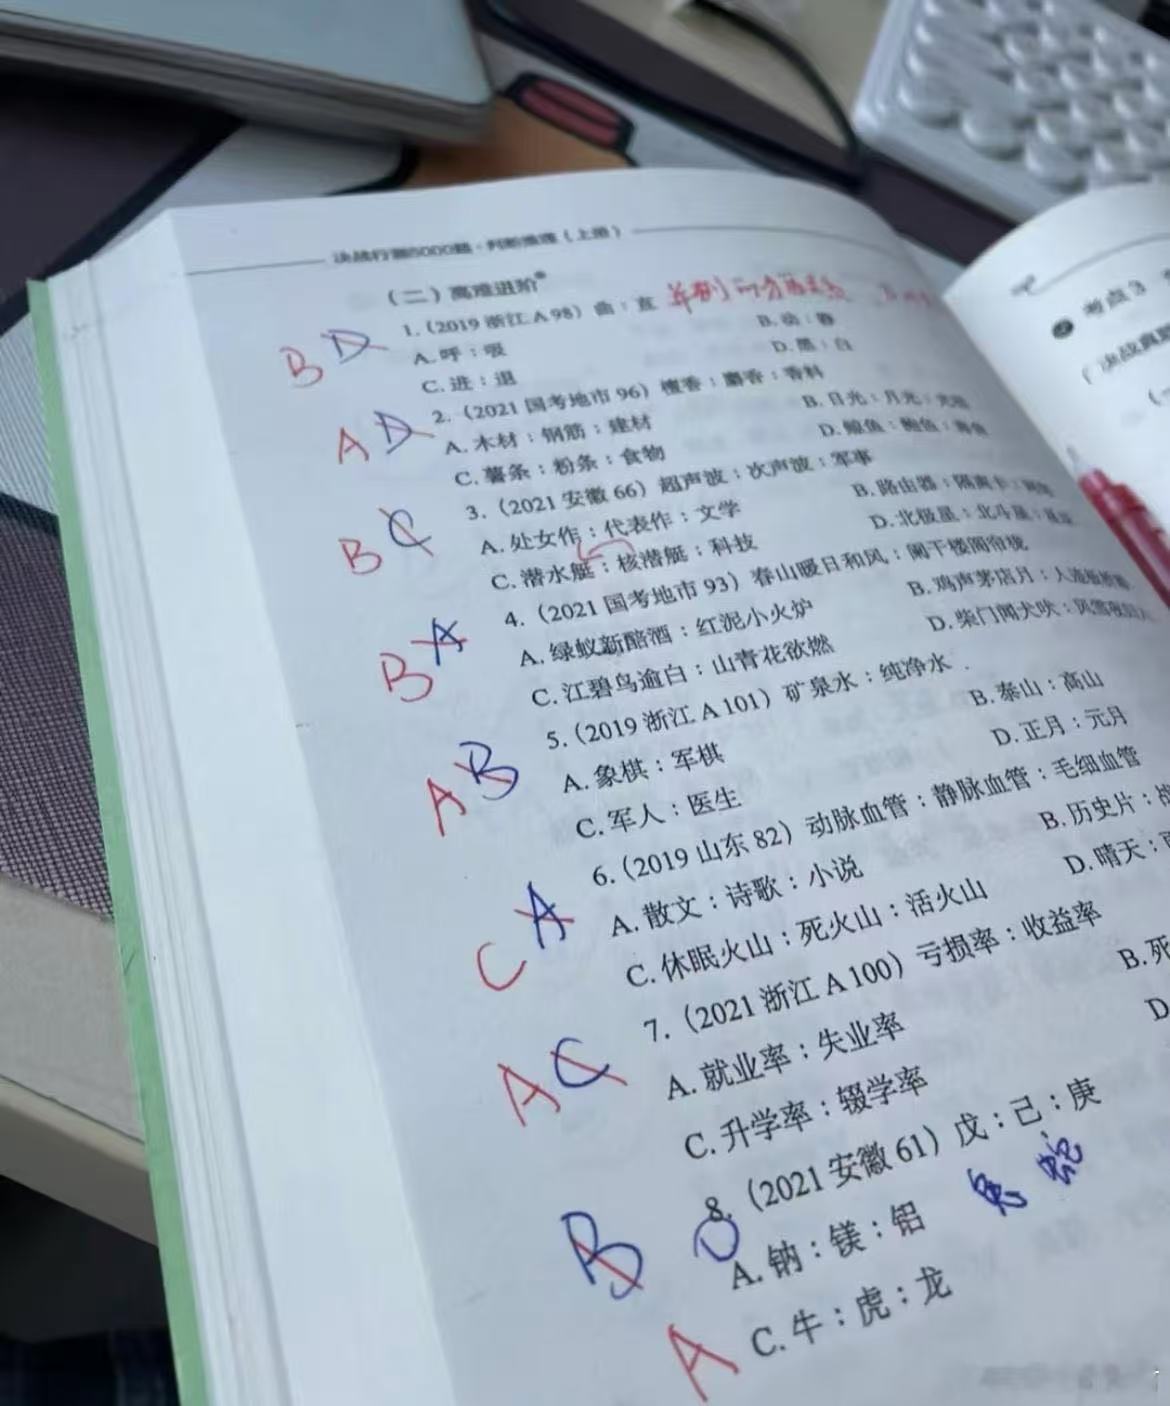 决战行测5000题·判断推理（上册）
（二）高难进阶
1.（2019 浙江 A 98）曲：直
A. 呼：吸
B. 动：静
C. 进：退
D. 黑：白
B D
2.（2021 国考地市 96）檀香：麝香：香料
A. 木材：钢筋：建材
B. 日光：月光：光
C. 薯条：粉条：食物
D. 鲸鱼：鲍鱼：
A D
3.（2021 安徽 66）超声波：次声波：军事
A. 处女作：代表作：文学
B. 路由器：隔离卡：
C. 潜水艇：核潜艇：科技
D. 北极星：北斗星：
B C
4.（2021 国考地市 93）春山暖日和风：阑干楼阁帘栊
A. 绿蚁新醅酒：红泥小火炉
B. 鸡声茅店月：人迹板桥霜
C. 江碧鸟逾白：山青花欲燃
D. 柴门闻犬吠：风雪夜归人
B A
5.（2019 浙江 A 101）矿泉水：纯净水
A. 象棋：军棋
B. 泰山：高山
C. 军人：医生
D. 正月：元月
A B
6.（2019 山东 82）动脉血管：静脉血管：毛细血管
A. 散文：诗歌：小说
B. 历史片：
C. 休眠火山：死火山：活火山
D. 晴天：
C A
7.（2021 浙江 A 100）亏损率：收益率
A. 就业率：失业率
B. 死
C. 升学率：辍学率
D
A C
8.（2021 安徽 61）戊：己：庚
A. 钠：镁：铝
兔 蛇
C. 牛：虎：龙
B D
A
考点 3